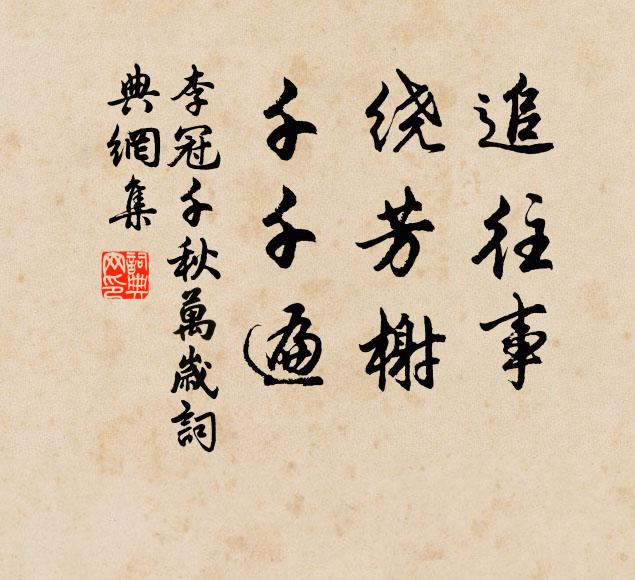 追往事
绕芳榭
千千遍
李冠千秋萬歲詞
典網集
詞典
网印